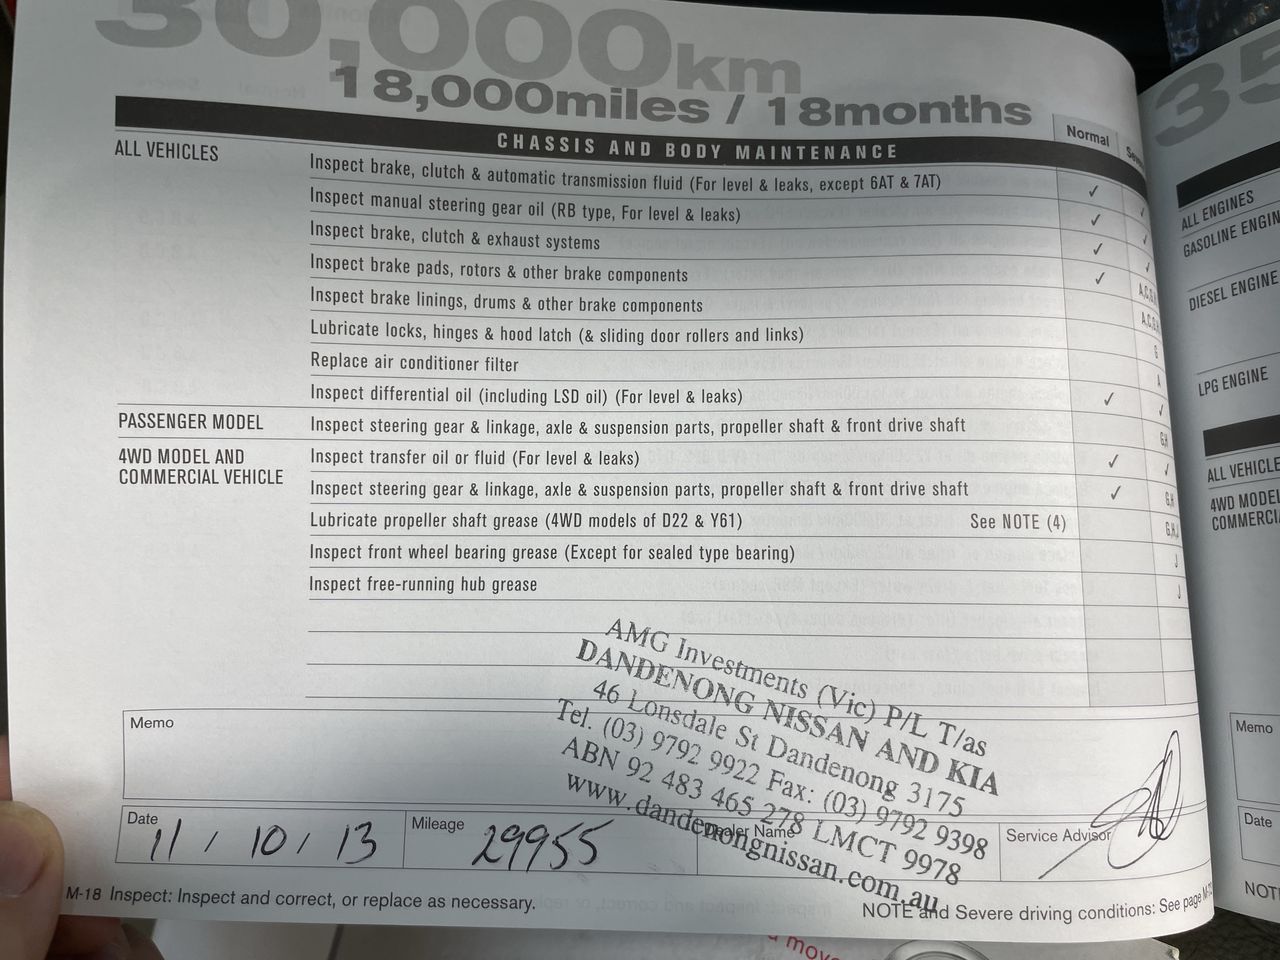 30,000km
18,000miles / 18months
CHASSIS AND BODY MAINTENANCE
Normal
ALL VEHICLES
Inspect brake, clutch & automatic transmission fluid (For level & leaks, except 6AT & 7AT) ✓ ✓
Inspect manual steering gear oil (RB type, For level & leaks) ✓ ✓
Inspect brake, clutch & exhaust systems ✓ ✓
Inspect brake pads, rotors & other brake components ✓
Inspect brake linings, drums & other brake components
Lubricate locks, hinges & hood latch (& sliding door rollers and links) G
Replace air conditioner filter A
Inspect differential oil (including LSD oil) (For level & leaks) ✓ ✓
PASSENGER MODEL Inspect steering gear & linkage, axle & suspension parts, propeller shaft & front drive shaft G,H
4WD MODEL AND
COMMERCIAL VEHICLE
Inspect transfer oil or fluid (For level & leaks) ✓ ✓
Inspect steering gear & linkage, axle & suspension parts, propeller shaft & front drive shaft ✓ G,H
Lubricate propeller shaft grease (4WD models of D22 & Y61) See NOTE (4)
Inspect front wheel bearing grease (Except for sealed type bearing) J
Inspect free-running hub grease J
AMG Investments (Vic) P/L T/as
DANDENONG NISSAN AND KIA
46 Lonsdale St Dandenong 3175
Tel. (03) 9792 9922 Fax: (03) 9792 9398
ABN 92 483 465 278 LMCT 9978
www.dandenongnissan.com.au
Memo
Date 11 / 10 / 13
Mileage 29955
Dealer Name
Service Advisor
M-18 Inspect: Inspect and correct, or replace as necessary.
NOTE and Severe driving conditions: See page
35
ALL ENGINES
GASOLINE
DIESEL ENGINE
LPG ENGINE
ALL
4WD
Memo
Date